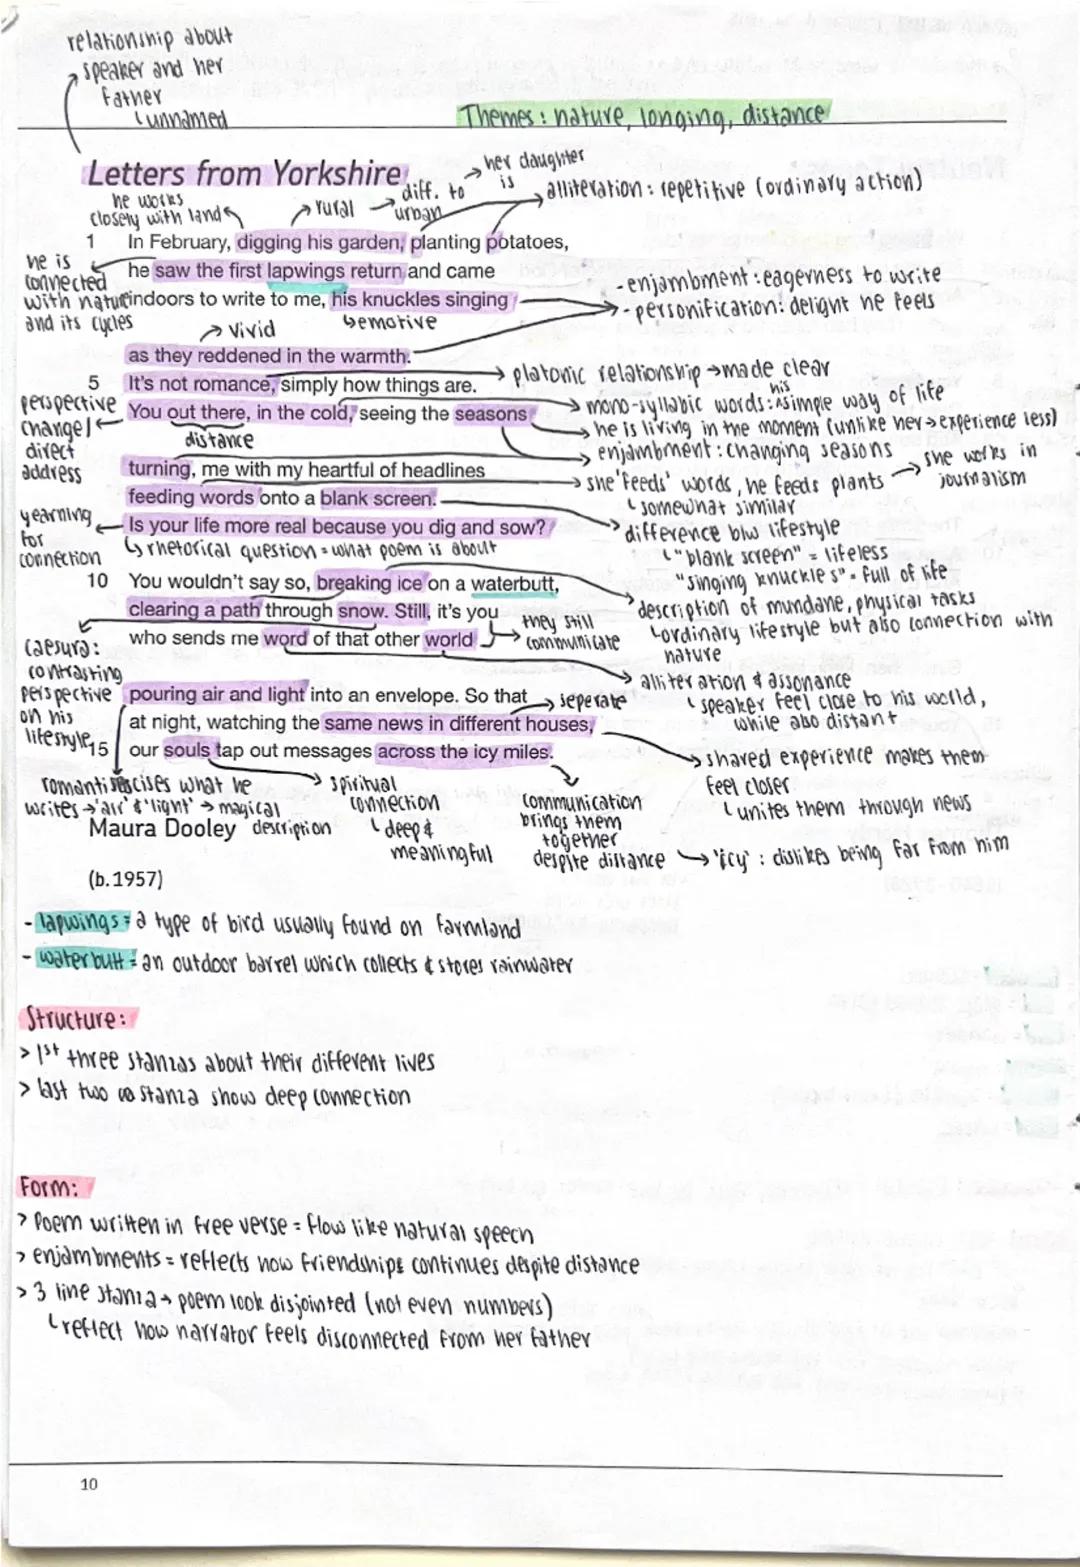 relationship about
speaker and her
father
unnamed
Themes : nature, longing, distance
Letters from Yorkshire
her daughter
is
he works
closely with land
rural
diff. to
urban
alliteration : repetitive (ordinary action)
1 In February, digging his garden, planting potatoes,
he is
connected
with nature
and its cycles
he saw the first lapwings return and came
indoors to write to me, his knuckles singing
- enjambment : eagerness to write
- personification : delight he feels
vivid
emotive
as they reddened in the warmth.
5 It's not romance, simply how things are.
platonic relationship → made clear
You out there, in the cold, seeing the seasons
perspective
change /
direct
address
distance
mono-syllabic words : his simple way of life
he is living in the moment (unlike her → experience less)
enjambment : changing seasons
turning, me with my heartful of headlines
she 'feeds' words, he feeds plants
somewhat similar
she works in
journalism
feeding words onto a blank screen.
Is your life more real because you dig and sow?
yearning
for
connection
rhetorical question = what poem is about
difference b/w lifestyle
"blank screen" = lifeless
"singing knuckles" = full of life
10 You wouldn't say so, breaking ice on a waterbutt,
clearing a path through snow. Still, it's you
who sends me word of that other world
they still
communicate
description of mundane, physical tasks
ordinary lifestyle but also connection with
nature
caesura:
contrasting
perspective
on his
lifestyle
alliteration & assonance
speaker feel close to his world,
while also distant
pouring air and light into an envelope. So that
seperate
at night, watching the same news in different houses,
15 our souls tap out messages across the icy miles.
shared experience makes them
feel closer
unites them through news
romanticises what he
writes → 'air' & 'light' → magical
description
spiritual
connection
deep &
meaningful
communication
brings them
together
despite distance
'icy' : dislikes being far from him
Maura Dooley
(b.1957)
- lapwings = a type of bird usually found on farmland
- waterbutt = an outdoor barrel which collects & stores rainwater
Structure:
> 1st three stanzas about their different lives
> last two stanza show deep connection
Form:
> Poem written in free verse = flow like natural speech
> enjambments = reflects how friendships continues despite distance
> 3 line stanza → poem look disjointed (not even numbers)
reflect how narrator feels disconnected from her father
10